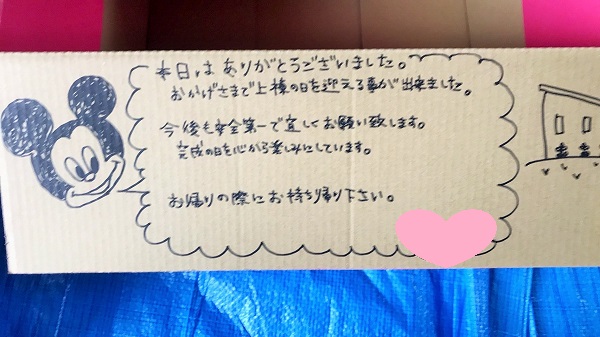 本日はありがとうございました。
おかげさまで上棟の日を迎える事が出来ました。
今後も安全第一で宜しくお願い致します。
完成の日を心から楽しみにしています。
お帰りの際にお持ち帰り下さい。